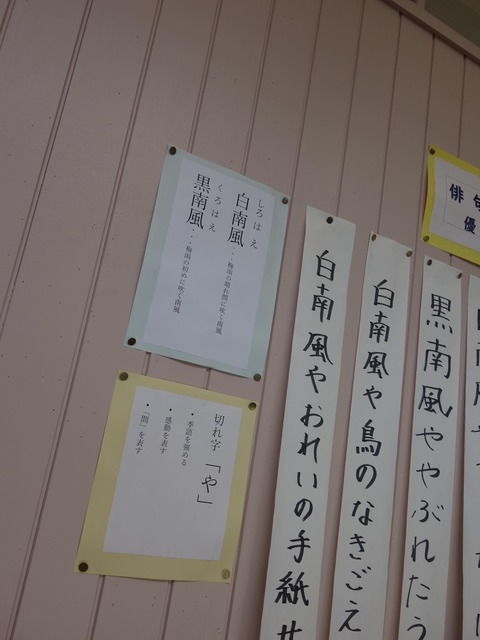 しろはえ
白南風・・・梅雨の晴れ間に吹く南風
くろはえ
黒南風・・・梅雨の初めに吹く南風
切れ字「や」
・季語を強める
・感動を表す
・「間」を表す
俳句
優
黒南風ややぶれたう
白南風や鳥のなきごえ
白南風やおれいの手紙せ